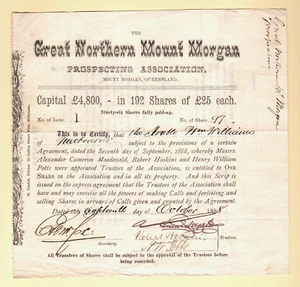 THE
Great Northern Mount Morgan
PROSPECTING ASSOCIATION,
MOUNT MORGAN, QUEENSLAND.
Capital £4,800, - in 192 Shares of £25 each.
Ninety-six Shares fully paid-up.
No. of Issue 1 No. of Share 97
This is to Certify, that
of Melbourne subject to the provisions of a certain
Agreement, dated the Seventh day of September, 1888, whereby Messrs.
Alexander Cameron Macdonald, Robert Hoskins and Henry William
Potts were appointed Trustees of the Association, is ENTITLED to ONE
SHARE in the Association and in its property. And this Scrip is
issued on the express agreement that the Trustees of the Association shall
have and may exercise all the powers of making Calls and forfeiting and
selling Shares in arrears of Calls given and granted by the Agreement.
Dated the eighteenth day of October 1888
Secretary.
Trustees.
All Transfers of Shares shall be subject to the approval of the Trustees before
being recorded.